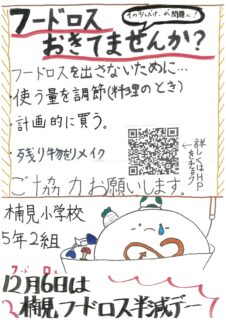 フードロス
おきてませんか?
フードロスを出さないために…
・使う量を調節(料理のとき)
・計画的に買う。
・残り物をリメイク
詳しくはHP
をチェック
ご協力お願いします。
楠見小学校
5年2組
フードロス
12月6日は
楠見フードロス半減デー